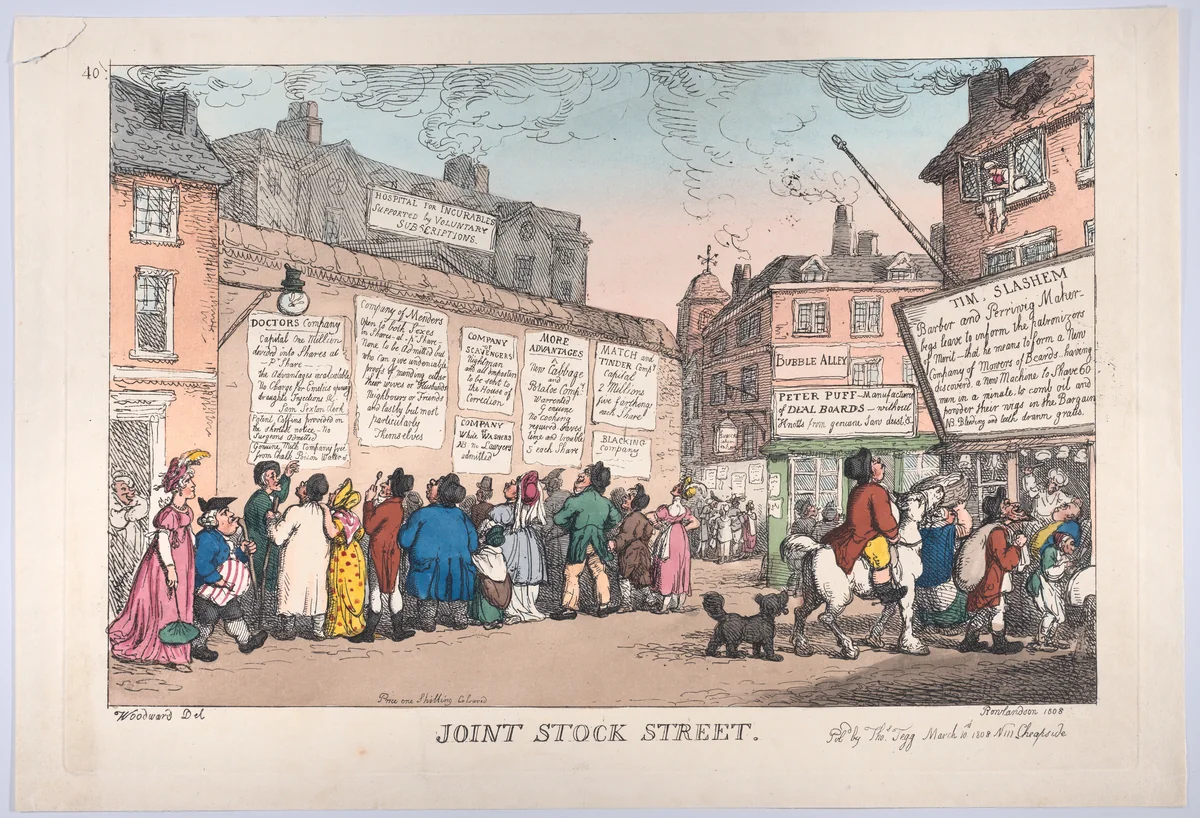 40
HOSPITAL for INCURABLES
Supported by VOLUNTARY
SUBSCRIPTIONS.
DOCTORS Company
Capital One Million
devided into Shares at
1 Pr Share
the Advantages invaluable
No Charge for Emetics
draughts Injections &c
Sam Sexton Clerk
Patent Coffins provided on
the shortest notice - No
Surgeons Admitted
Genuine Milk Company free
from Chalk Water &c
Company of Menders
Open to both Sexes
in Shares at 1 Pr Share
None to be Admitted but
who can give undeniable
proofs of mending either
their wives or Husbands
Neighbours or Friends
and lastly but most
particularly
Themselves
COMPANY
of
SCAVENGERS
Nightmen
and all impostors
to be sent to
the House of
Correction
COMPANY
of
White Washers
NB no Lawyers
admitted
MORE
ADVANTAGES
A
New Cabbage
and
Potatoe Compy
Warrented
Genuine
No cooking
required Saves
time and trouble
5 each Share
MATCH and
TINDER Compy
Capital
2 Millions
five farthings
each Share
BLACKING
Company
BUBBLE ALLEY
PETER PUFF - Manufacturer
of DEAL BOARDS - without
Knotts from genuine Saw dust
TIM. SLASHEM
Barber and Perriwig Maker-
begs leave to inform the patronizers
of Merit - that he means to form a New
Company of Mowers of Beards - having
discoverd a New Machine to Shave 60
men in a minute. to comb oil and
powder their wigs in the Bargain
NB Bleeding and teeth drawn gratis.
Price one Shilling Colourd
Woodward Del
Rowlandson 1808
JOINT STOCK STREET.
Pubd by Thos Tegg March 10th 1808 N111 Cheapside